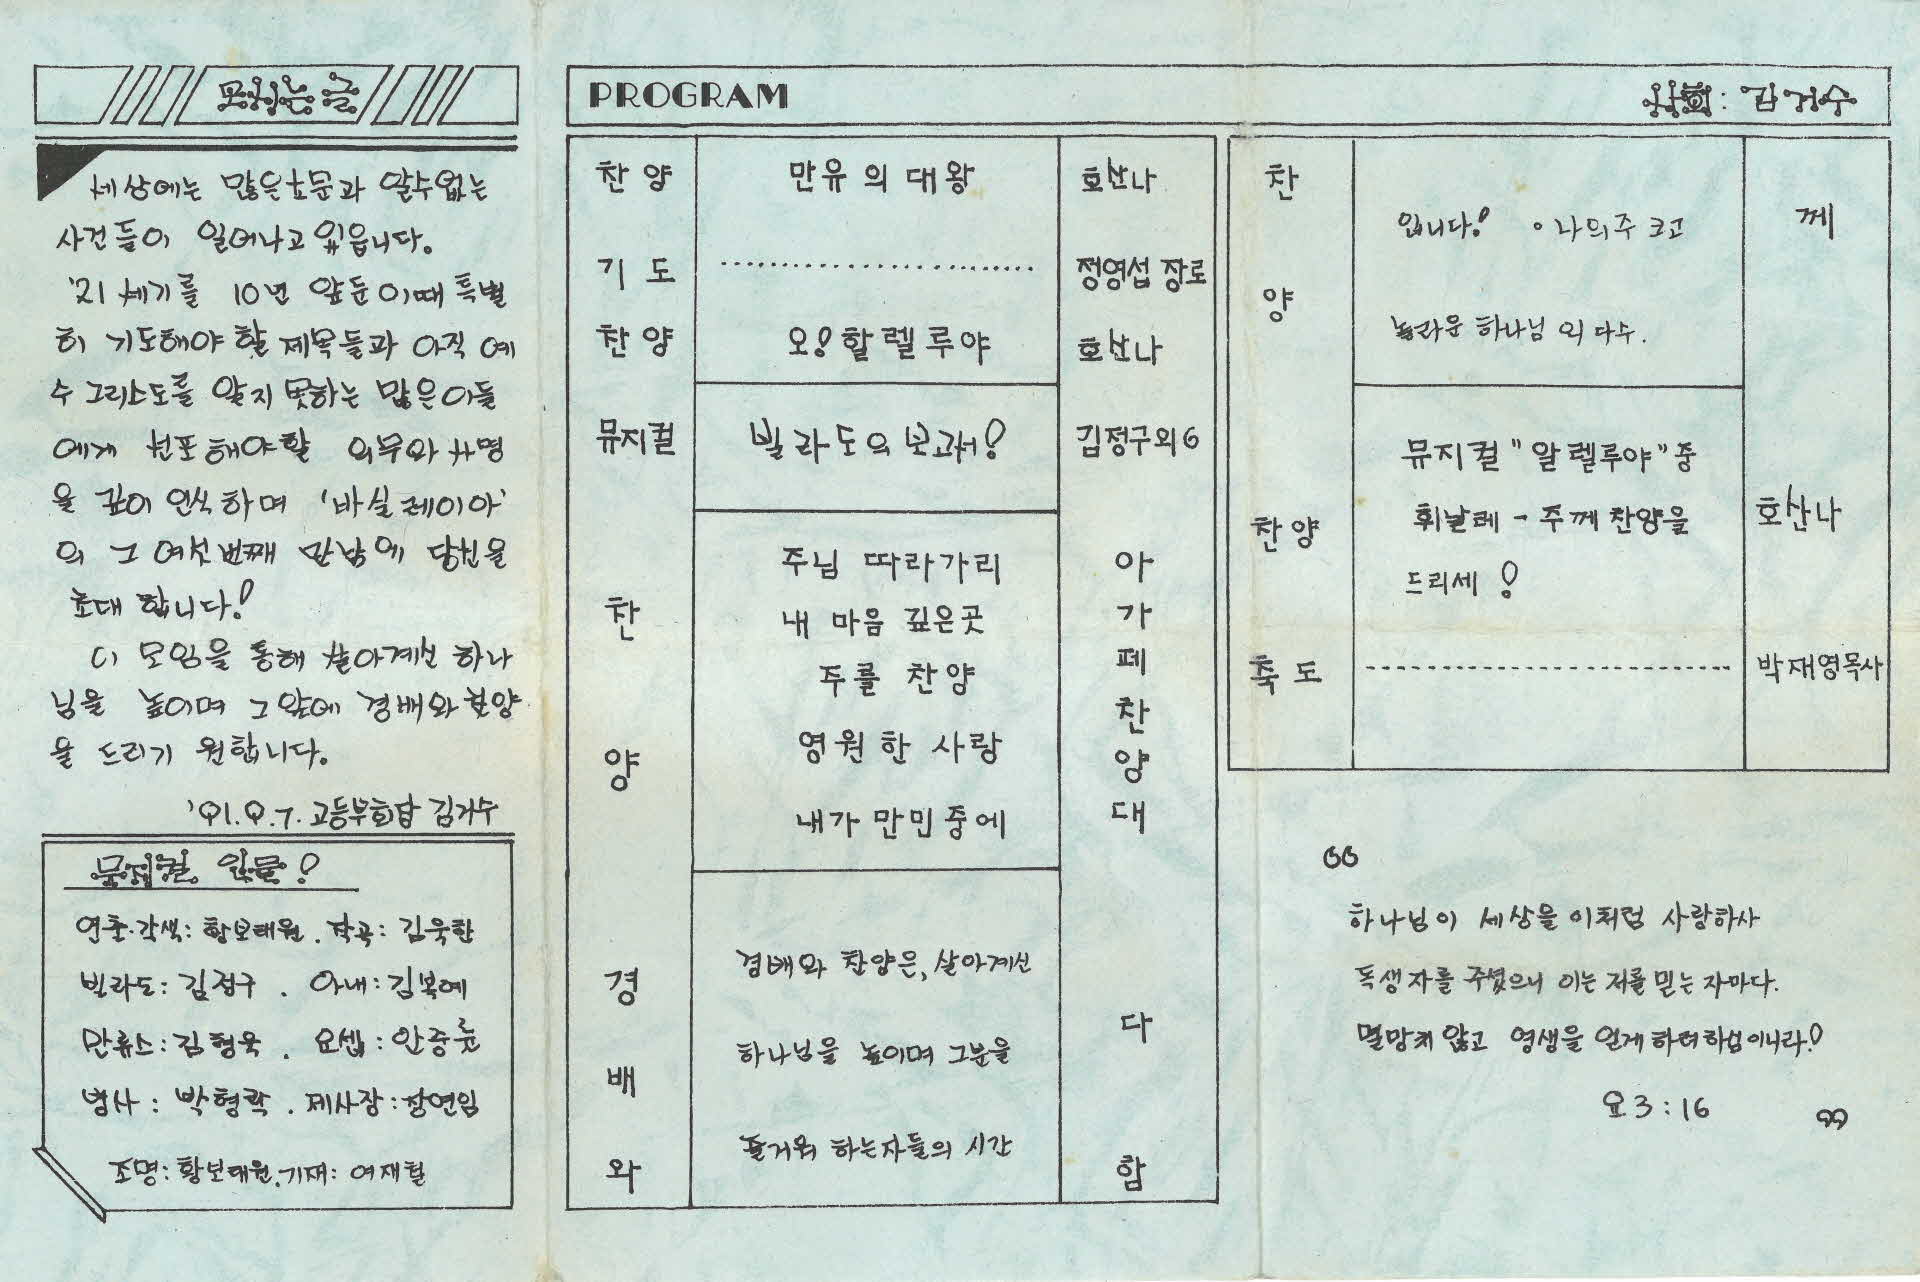 모시는 글
세상에는 많은 소문과 알수없는
사건들이 일어나고 있읍니다.
'21세기를 10년 앞둔 이때 특별
히 기도해야 할 제목들과 아직 예
수 그리스도를 알지 못하는 많은이들
에게 선포해야할 의무와 사명
을 깊이 인식하며 '바실레이아'
의 그 여섯번째 만남에 당신을
초대 합니다!
이 모임을 통해 살아계신 하나
님을 높이며 그앞에 경배와 찬양
을 드리기 원합니다.
'91.9.7. 고등부회장 김거수
뮤지컬 인물!
연출·각색: 황보태원. 작곡: 김욱한
빌라도: 김정구. 아내: 김복예
만류스: 김형욱. 요셉: 안중
병사: 박형락. 제사장: 장연임
조명: 황보태원. 기재: 여재철
PROGRAM 사회: 김거수
찬양 만유의 대왕 호산나
기도 .............................. 정영섭 장로
찬양 오! 할렐루야 호산나
뮤지컬 빌라도의 보고서! 김정구외6
찬양 아가페찬양대
주님 따라가리
내 마음 깊은곳
주를 찬양
영원한 사랑
내가 만민중에
경배와 다함
경배와 찬양은, 살아계신
하나님을 높이며 그분을
즐거워 하는자들의 시간
찬양 께
입니다! • 나의주 크고
놀라운 하나님 외 다수.
찬양 호산나
뮤지컬 "알렐루야" 중
휘날레 - 주께 찬양을
드리세!
축도 ------------------------------ 박재영목사
"
하나님이 세상을 이처럼 사랑하사
독생자를 주셨으니 이는 저를 믿는 자마다.
멸망치 않고 영생을 얻게 하려하심이니라!
요 3:16
"